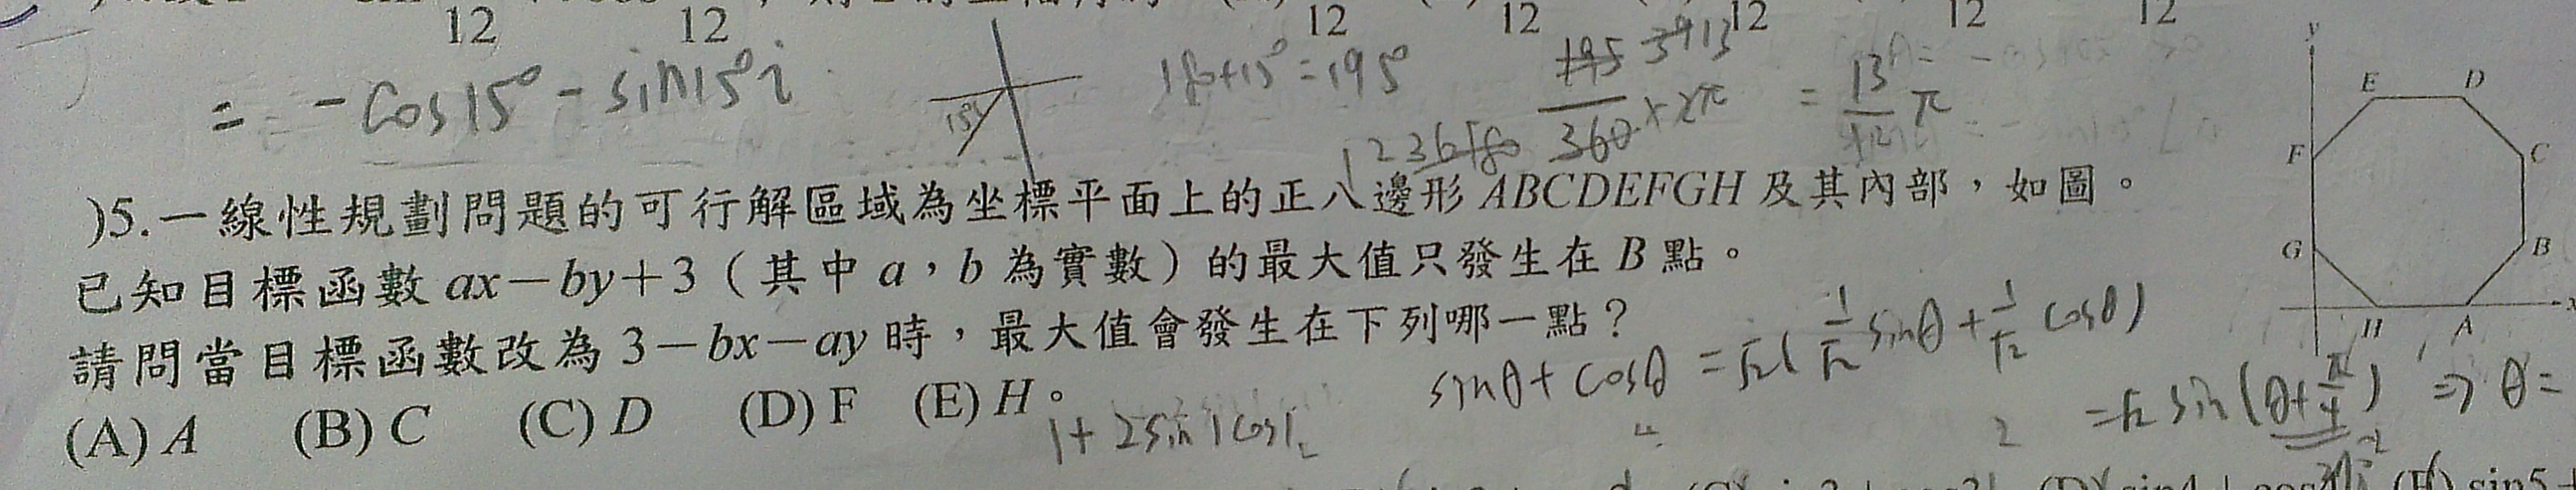 12 12 12 12 12 12 12
= -cos15° - sin15°i 15° 180+15°=195° 195/360 × 2π = 13/12 π
)5.一線性規劃問題的可行解區域為坐標平面上的正八邊形 ABCDEFGH 及其內部，如圖。
已知目標函數 ax－by＋3（其中 a，b 為實數）的最大值只發生在 B 點。
請問當目標函數改為 3－bx－ay 時，最大值會發生在下列哪一點？
(A) A (B) C (C) D (D) F (E) H。
1+2sin1cos1
sinθ+cosθ = √2(1/√2 sinθ + 1/√2 cosθ)
=√2 sin(θ+π/4) ⇒ θ=
y
E D
F C
G B
H A x